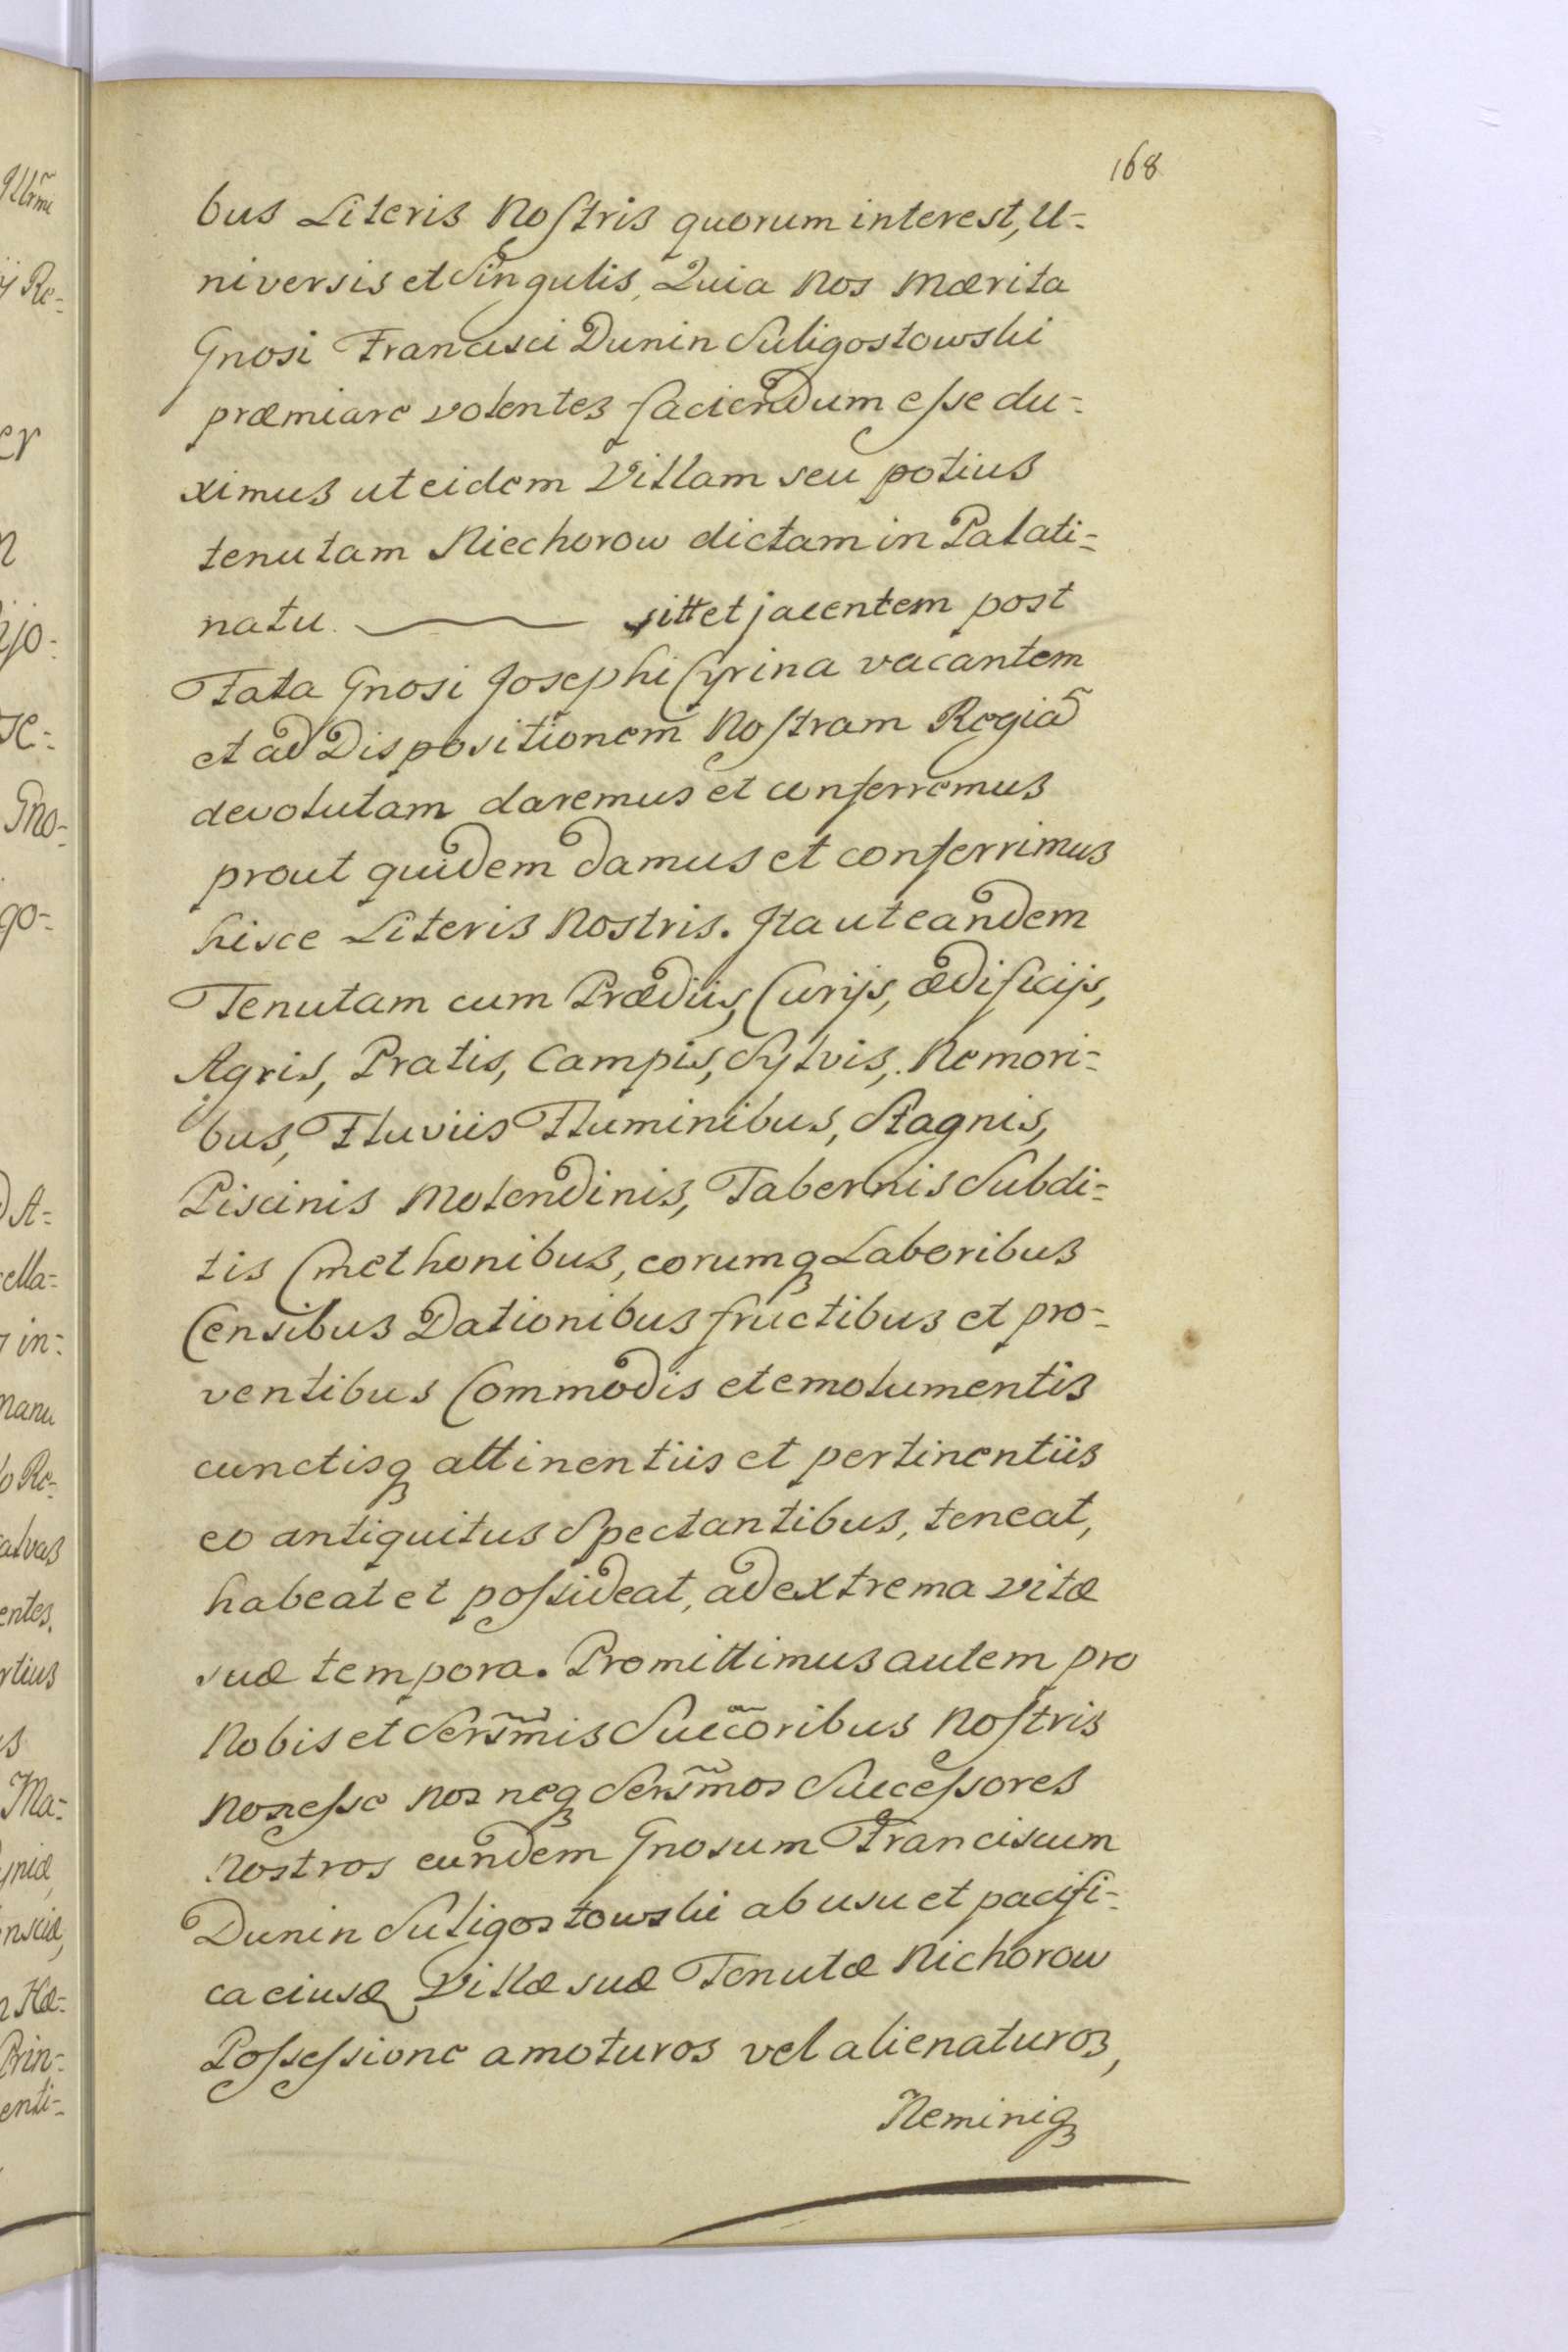 168
bus Literis Nostris quorum interest, U-
niversis et Singulis, Quia Nos Mærita
Gnosi Francisci Dunin Suligostowski
præmiare volentes faciendum esse du-
ximus ut eidem Villam seu potius
tenutam Niechorow dictam in Palati-
natu. sitt et jacentem post
Fata Gnosi Josephi Cyrina vacantem
et ad Dispositionem Nostram Regiã
devolutam daremus et conferremus
prout quidem damus et conferrimus
hisce Literis Nostris. Ita ut eandem
Tenutam cum Prædiis, Curijs, ædificijs,
Agris, Pratis, Campis, Sylvis, Nemori-
bus, Fluviis Fluminibus, Stagnis,
Piscinis Molendinis, Tabernis Subdi-
tis Cmethonibus, eorumq Laboribus
Censibus Dationibus fructibus et pro-
ventibus Commodis et emolumentis
cunctisq attinentiis et pertinentiis
eo antiquitus Spectantibus, teneat,
habeat et possideat, ad extrema vitæ
suæ tempora. Promittimus autem pro
Nobis et Sersm̃is Succõribus Nostris
Non esse nos neq Sersm̃os Successores
Nostros eundem Gnosum Franciscum
Dunin Suligostowski ab usu et pacifi-
ca eiusd Villæ suæ Tenutæ Nichorow
Possessione amoturos vel alienaturos,
Neminiq